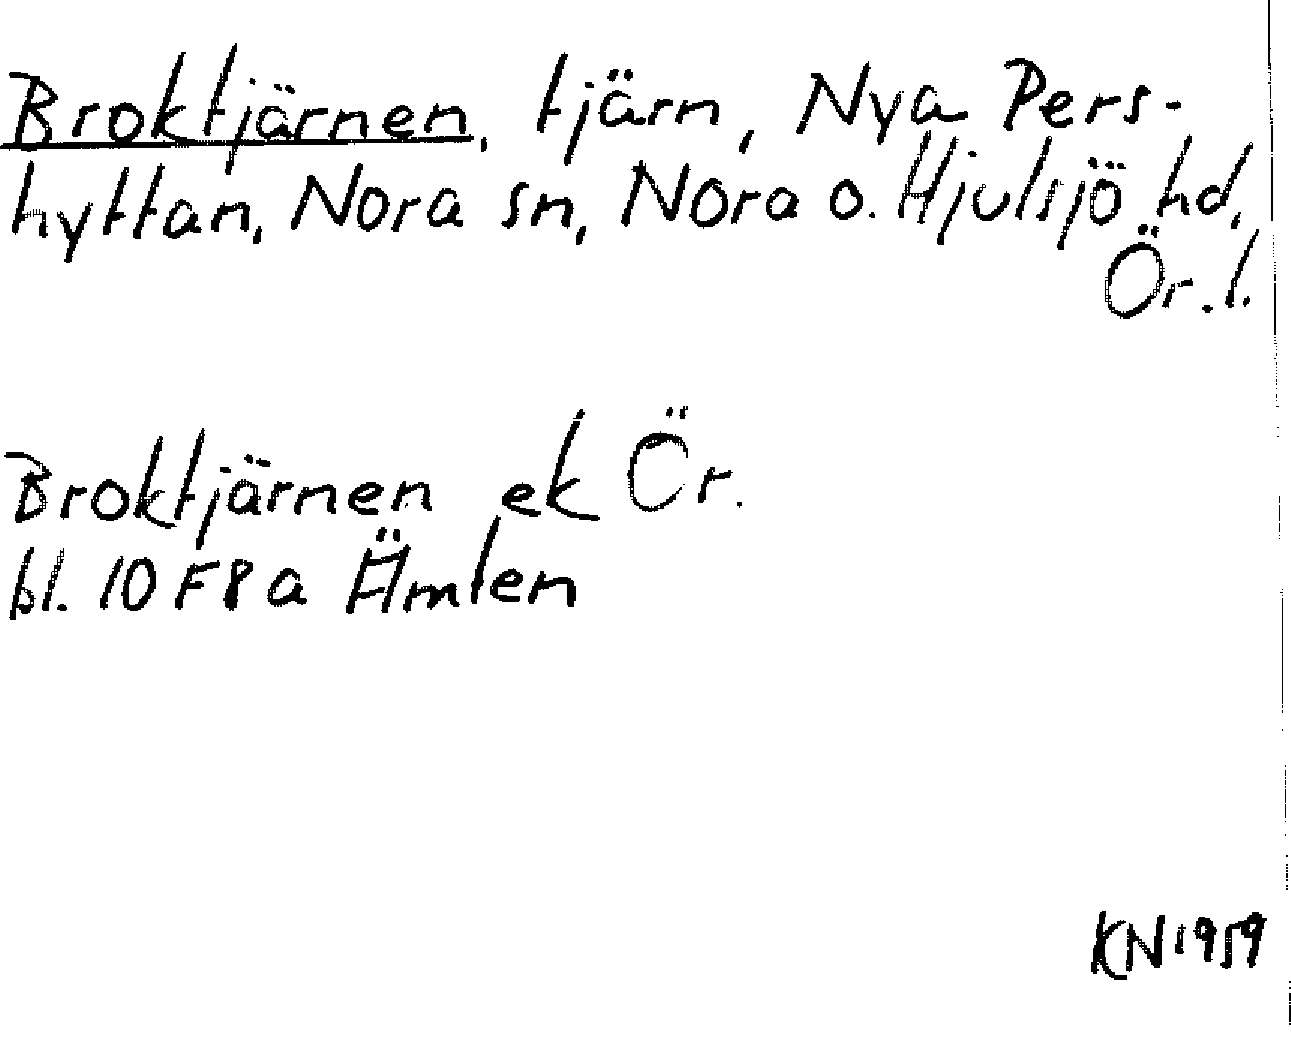 Broktjärnen, tjärn, Nya Pers-
hyttan, Nora sn, Nora o. Hjulsjö hd,
Ör. l.
Broktjärnen ek Ör.
bl. 10 F8a Ämlen
KN 1959